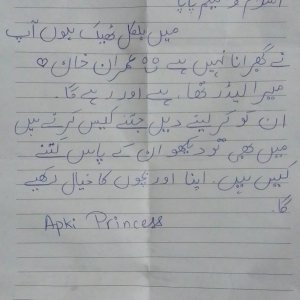 السلام و علیکم پاپا
میں بلکل ٹھیک ہوں آپ
نے گھبرانا نہیں ہے عمران خان ♡
میرا لیڈر تھا، ہے اور رہے گا۔
ان کو کر لینے دیں جتنے کیس کرتے ہیں
میں بھی تو دیکھو ان کے پاس کتنے
کیس ہیں۔ اپنا اور بچوں کا خیال رکھیے
گا۔
Apki Princess